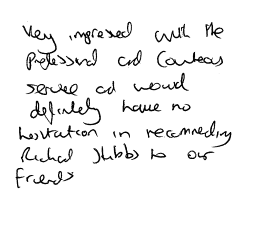 Very impressed with the
Professional and Courteous
service and would
definitely have no
hesitation in recommending
Richard Stubbs to our
friends